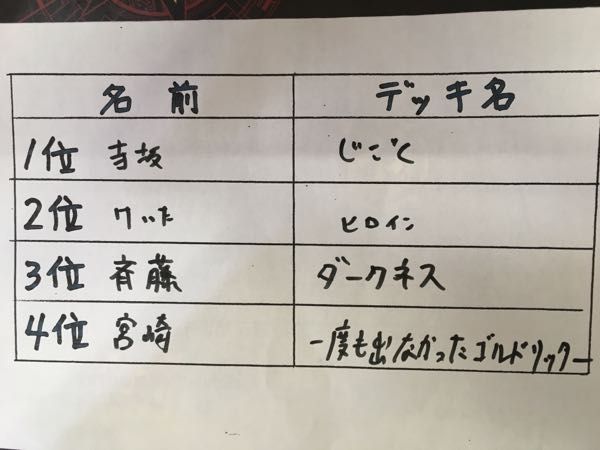 名前 デッキ名
1位 寺坂 じごく
2位 けいた ヒロイン
3位 斉藤 ダークネス
4位 宮崎 一度も出なかったゴルドリッター